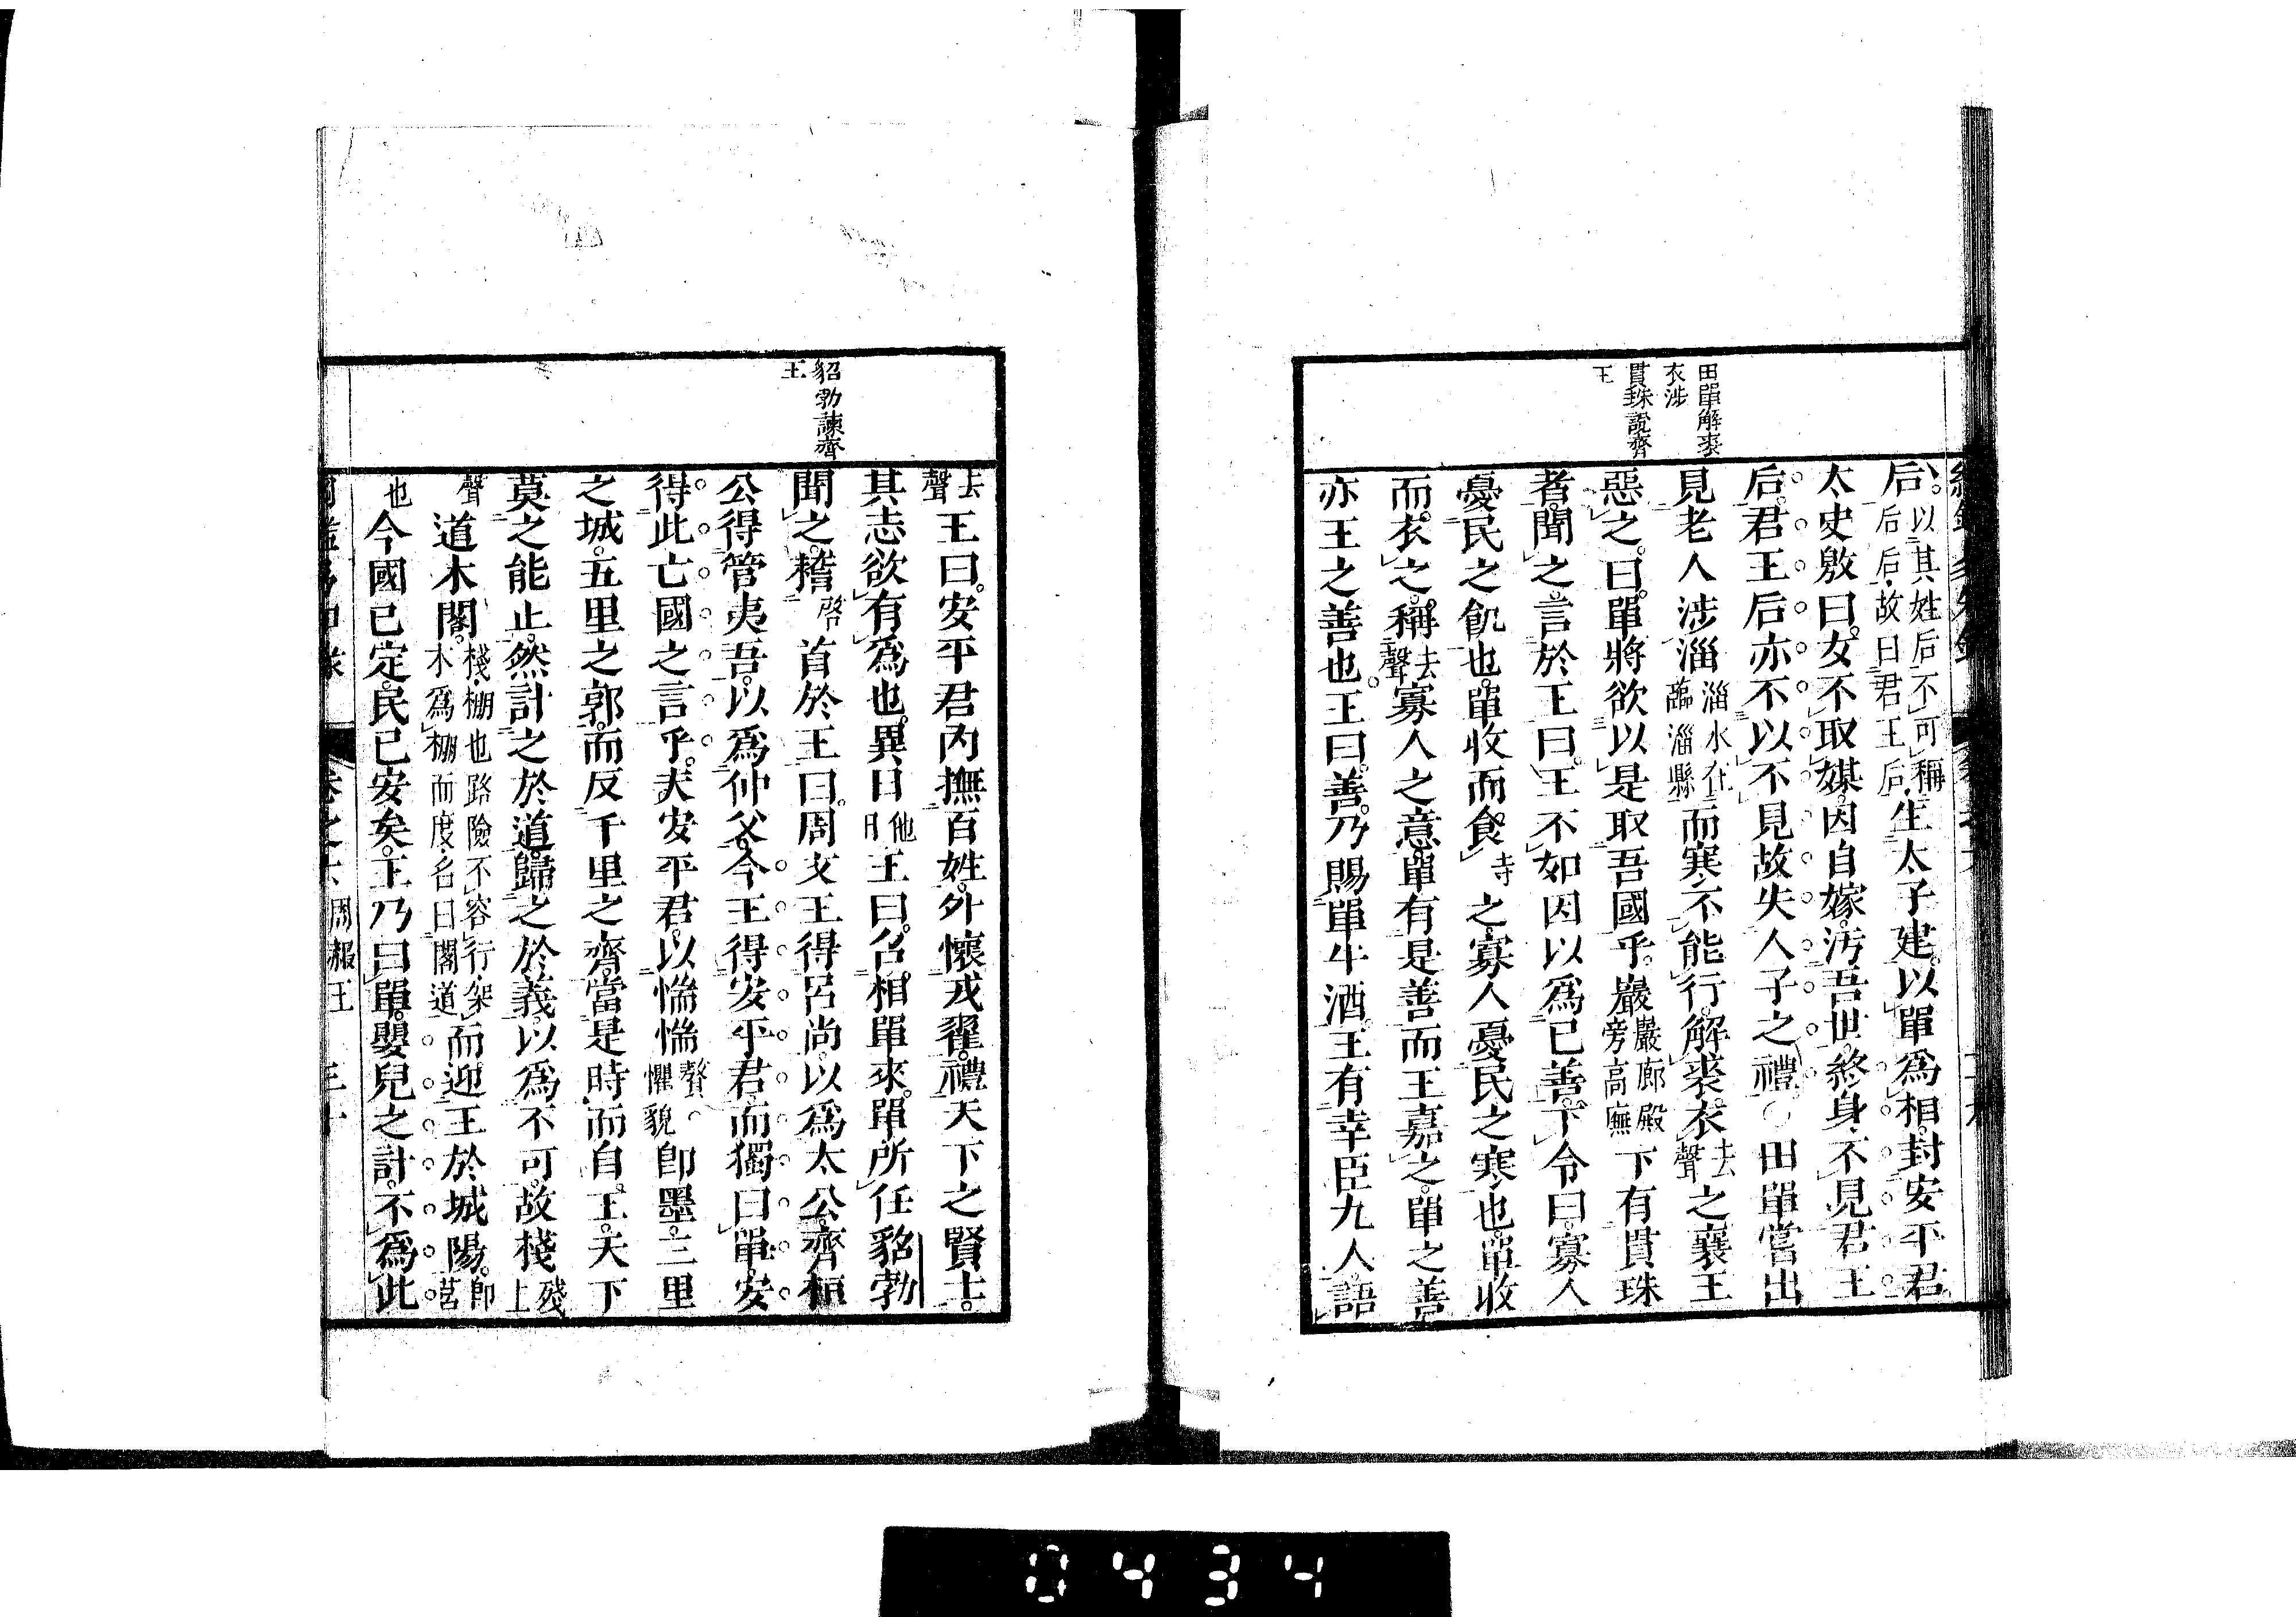 田單解裘
衣涉
貫珠說齊
王
后、以其姓后不可稱后后后故曰君王后生太子建以單爲相封安平君
太史敫曰女不取媒因自嫁汚吾世終身不見君王
后君王后亦不以不見故失人子之禮○田單嘗出
見老人涉淄淄水在臨淄縣而寒不能行解裘衣去聲之襄王
惡之曰單將欲以是取吾國乎巖巖廊殿旁高廡下有貫珠
者聞之言於王曰王不如因以爲已善下令曰寡人
憂民之飢也單收而食寺之寡人憂民之寒也單收
而衣之稱去聲寡人之意單有是善而王嘉之單之善
亦王之善也王曰善乃賜單牛酒王有幸臣九人語
貂勃諫齊
王
去聲王曰安平君內撫百姓外懷戎翟禮天下之賢士
其志欲有爲也異日他日王曰召相單來單所任貂勃
聞之稽啓首於王曰周文王得呂尚以爲太公齊桓
公得管夷吾以爲仲父今王得安平君而獨曰單安
得此亡國之言乎夫安平君以惴惴贅懼貌卽墨三里
之城五里之郭而反千里之齊當是時而自王天下
莫之能止然計之於道歸之於義以爲不可故棧殘上
聲道木閣棧棚也路險不容行架木爲棚而度名曰閣道而迎王於城陽卽莒
也今國已定民已安矣王乃曰單嬰兒之計不爲此
卷之六 周赧王 三十